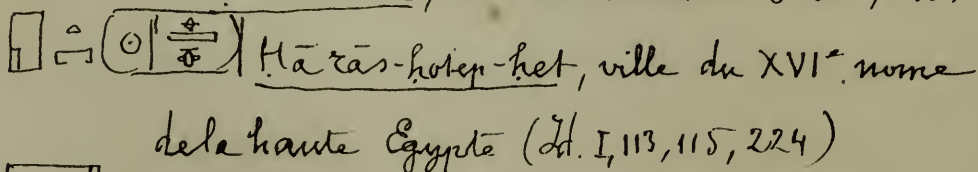 Hā rās-hotep-het, ville du XVIᵉ nome
de la haute Égypte (Id. I, 113, 115, 224)